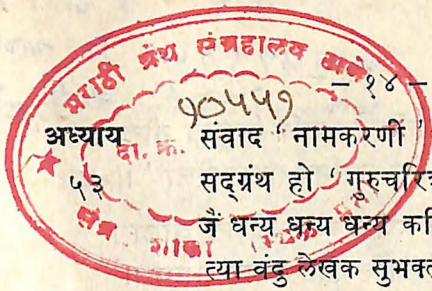 मराठी ग्रंथ संग्रहालय ठाणे
– १४ –
दा. क्र. १०५५१
अध्याय संवाद ' नामकरणी '
५३ सद्ग्रंथ हो ' गुरुचरित्र
जें धन्य धन्य धन्य कवि
त्या वंदु लेखक सुभक्त
शाखा